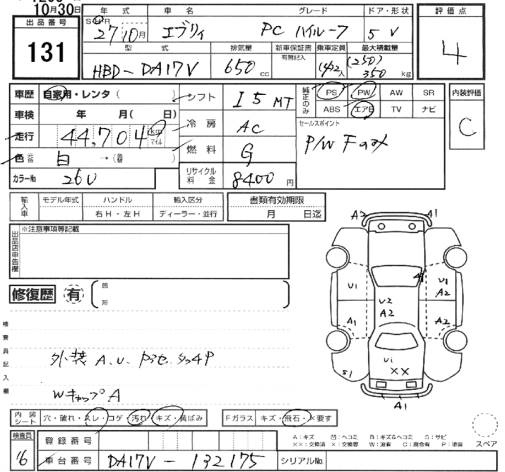 10月30日
出品番号
131
年式 車名 グレード ドア・形状
27年10月 エブリィ PC ハイルーフ 5 V
型式 排気量 新車保証書 乗車定員 最大積載量
有無記入
HBD-DA17V 650cc (4)2人 (250) 350kg
評価点
4
車歴 自家用・レンタ( )
シフト I5 MT
車検 年 月( 日)
冷房 AC
走行 44,704 km マイル
燃料 G
色 白 →( )
カラーNo 26U
リサイクル料金 8400円
純正のみ PS PW AW SR
ABS エアB TV ナビ
セールスポイント
P/W Fのみ
内装評価
C
輸入車 モデル年式 ハンドル 輸入区分
右H・左H ディーラー・並行
書類有効期限
月 日迄
出品店申告欄 ※注意事項等記載
修復歴 有
箇所
検査員記入欄
外装 A.U.
Wキャップ A
内装シート 穴・破れ・スレ・コゲ・汚れ・キズ・黄ばみ
Fガラス キズ・飛石・×要す
検査員 16
登録番号
車台番号 DA17V-132175
シリアルNo
A2 A1
U1 U1
A2
U2
A2
A1 A2
U1
××
S1
A1
A:キズ U:ヘコミ B:キズ&ヘコミ S:サビ
××:交換済 X:交換要 W:波有 C:腐食有 P:塗装
スペア